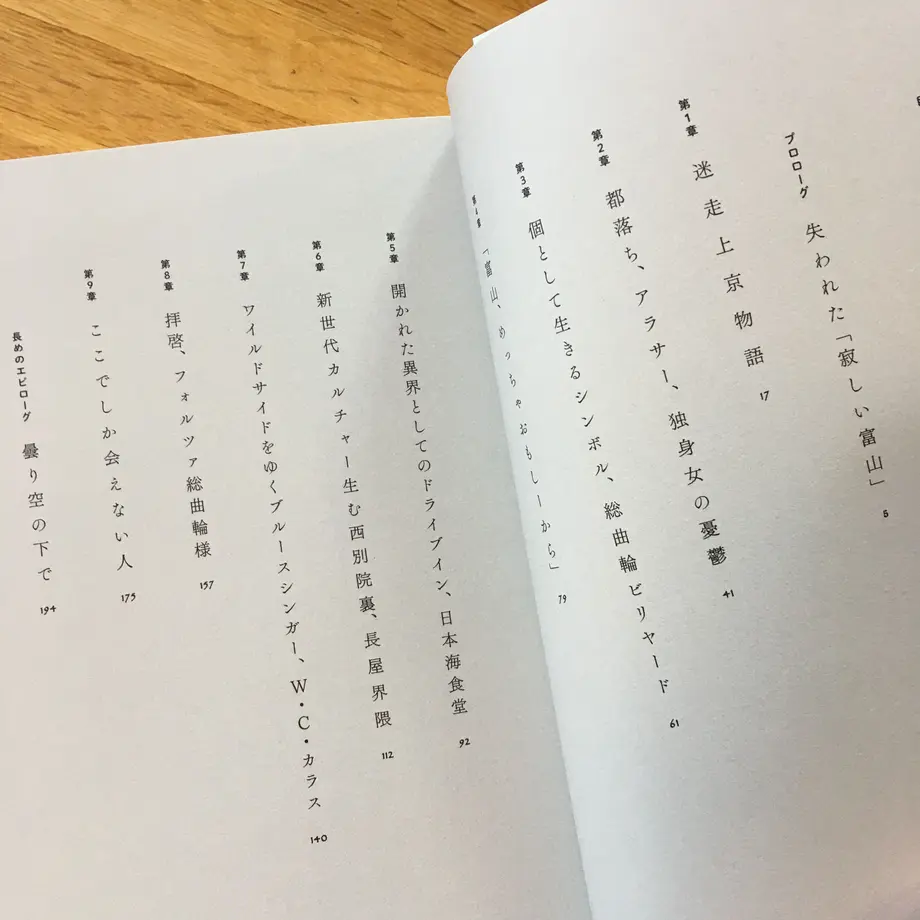 プロローグ 失われた「寂しい富山」 5
第1章 迷走上京物語 17
第2章 都落ち、アラサー、独身女の憂鬱 41
第3章 個として生きるシンボル、総曲輪ビリヤード 61
第4章 「富山、めっちゃおもしーから」 79
第5章 開かれた異界としてのドライブイン、日本海食堂 92
第6章 新世代カルチャー生む西別院裏、長屋界隈 112
第7章 ワイルドサイドをゆくブルースシンガー、W・C・カラス 140
第8章 拝啓、フォルツァ総曲輪様 157
第9章 ここでしか会えない人 175
長めのエピローグ 曇り空の下で 194